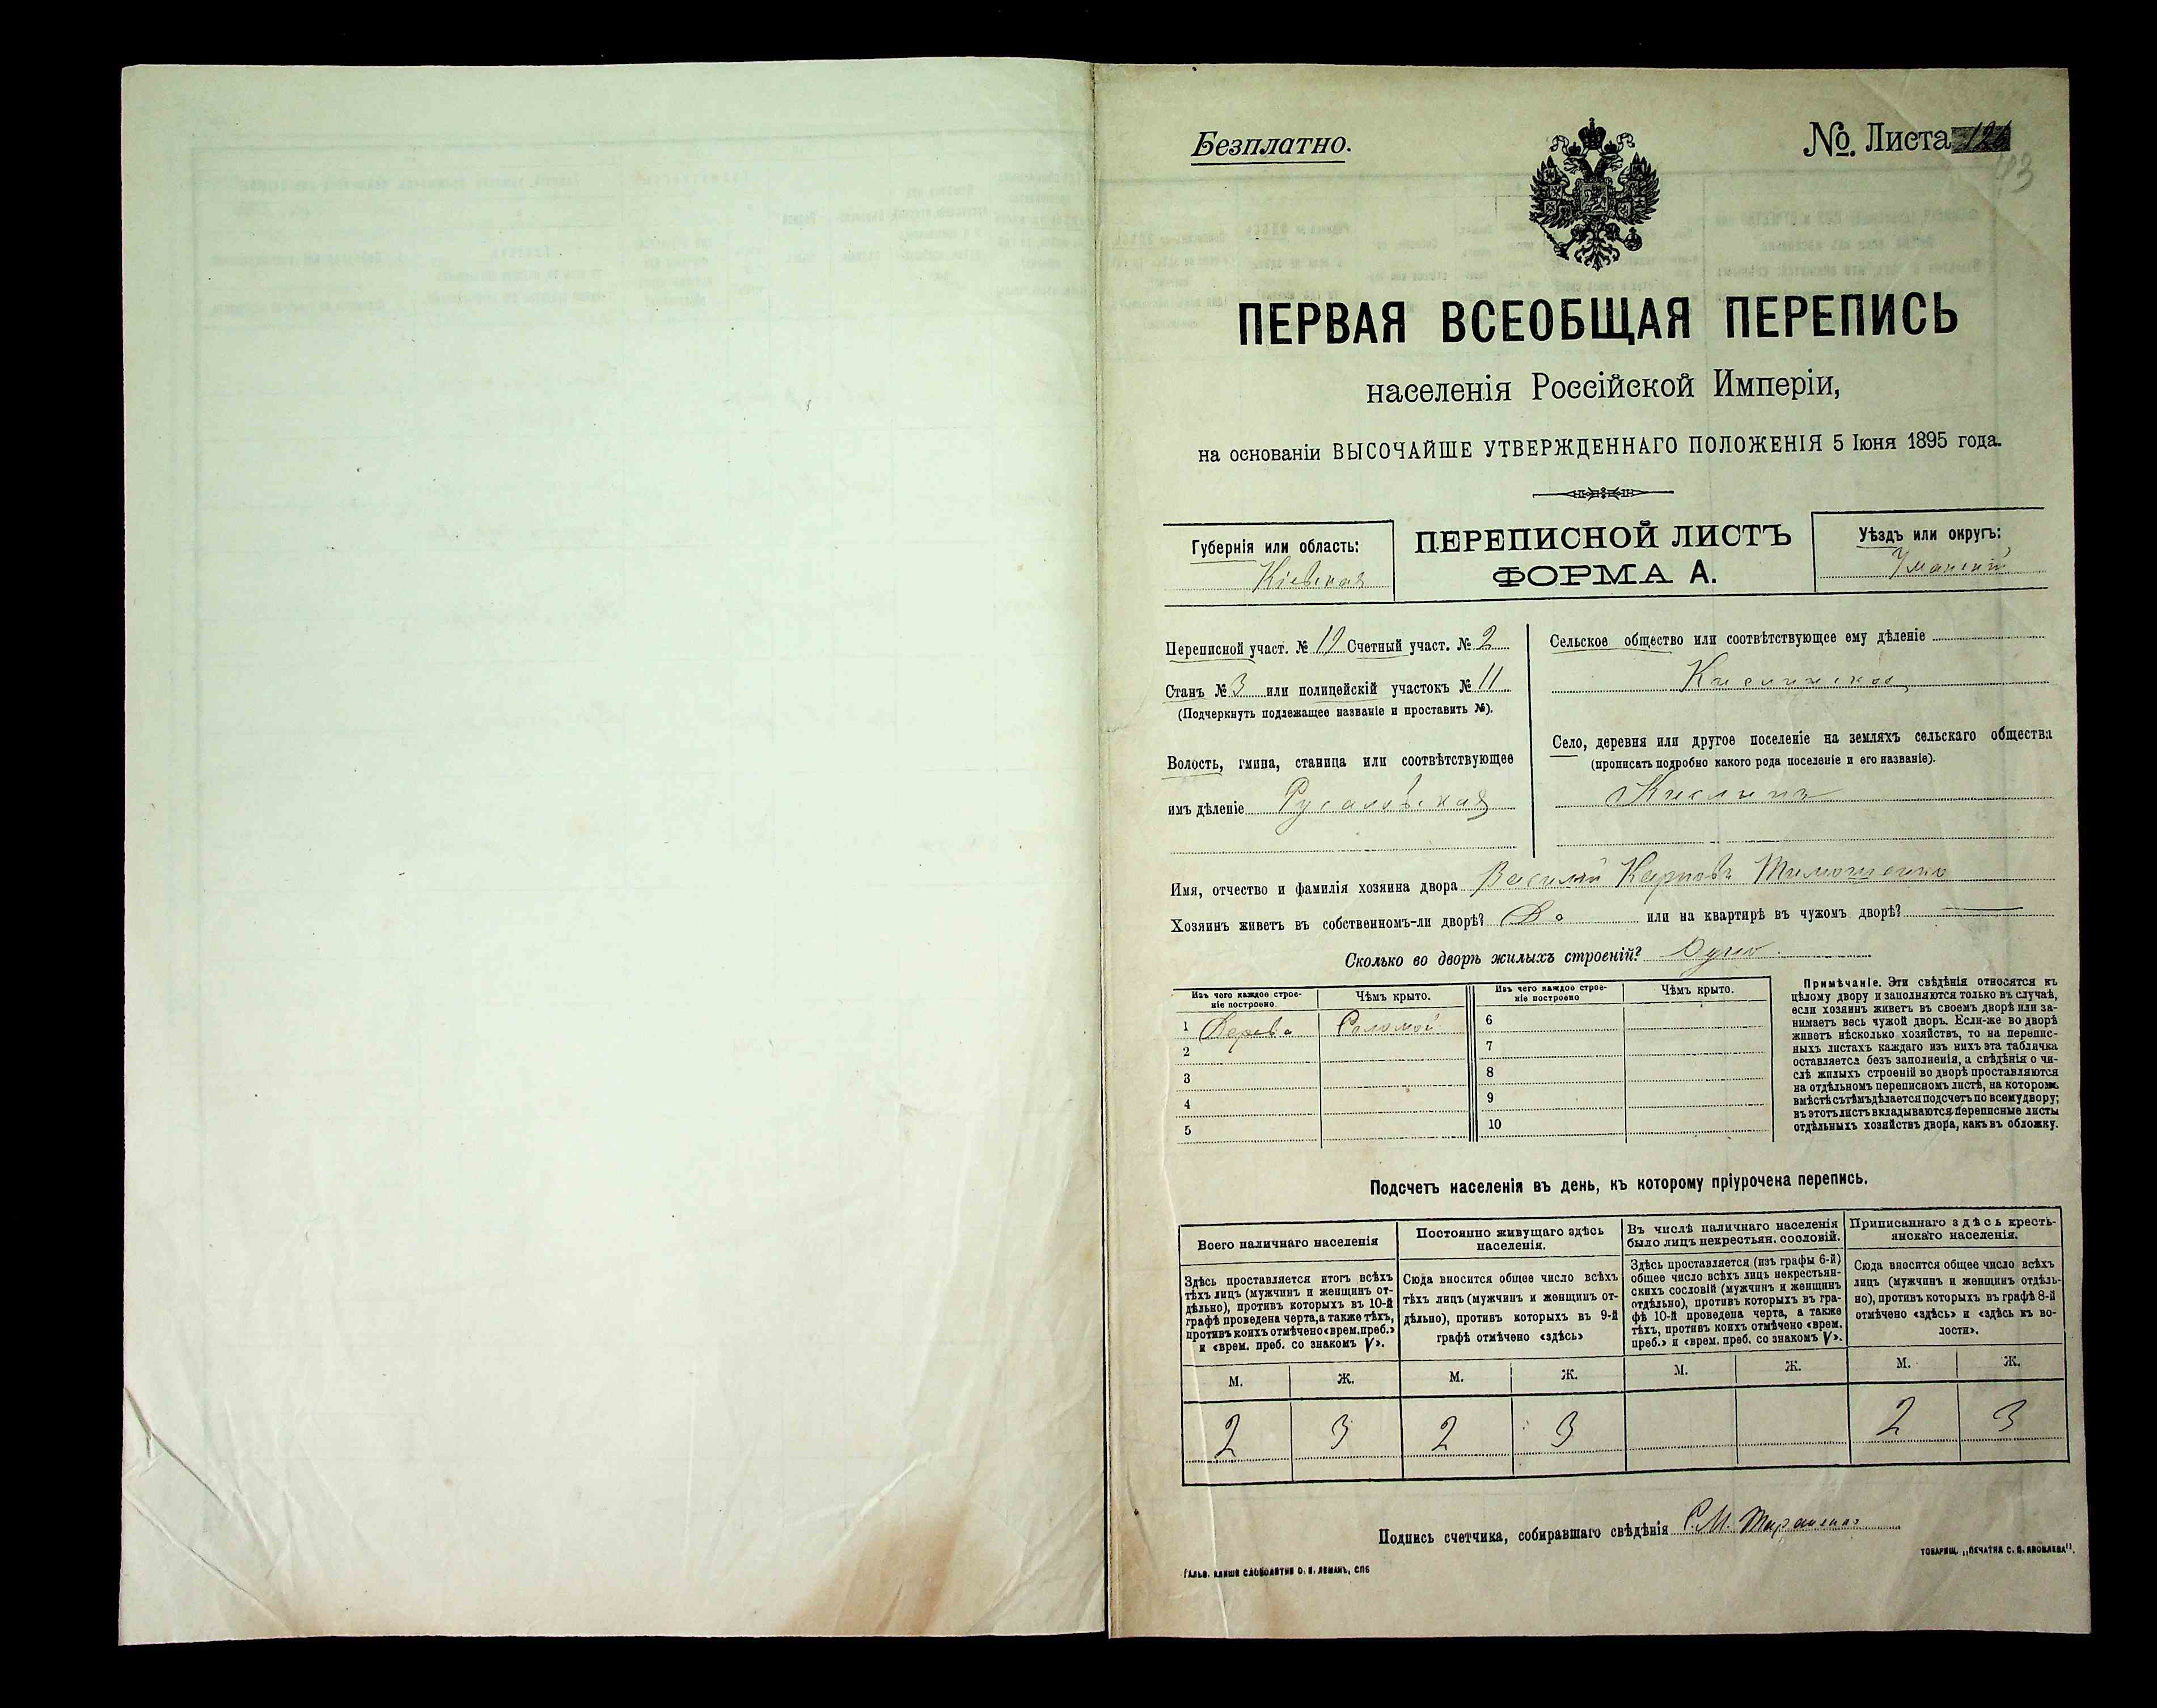 Безплатно.
№ Листа 126
ПЕРВАЯ ВСЕОБЩАЯ ПЕРЕПИСЬ
населенія Россійской Имперіи,
на основаніи ВЫСОЧАЙШЕ УТВЕРЖДЕННАГО ПОЛОЖЕНІЯ 5 Іюня 1895 года.
Губернія или область:
Кіевская
ПЕРЕПИСНОЙ ЛИСТЪ
ФОРМА А.
Уѣздъ или округъ:
Уманскій
Переписной участ. № 12 Счетный участ. № 2
Станъ № 3 или полицейскій участокъ № 11
(Подчеркнуть подлежащее названіе и проставить №).
Волость, гмина, станица или соотвѣтствующее
имъ дѣленіе Русаловская
Сельское общество или соотвѣтствующее ему дѣленіе
Кислинское
Село, деревня или другое поселеніе на земляхъ сельскаго общества
(прописать подробно какого рода поселеніе и его названіе).
Кислинъ
Имя, отчество и фамилія хозяина двора Василій Карповъ Тимошенко
Хозяинъ живетъ въ собственномъ-ли дворѣ? Да или на квартирѣ въ чужомъ дворѣ?
Сколько во дворѣ жилыхъ строеній? Одно
Изъ чего каждое строе-
ніе построено
Чѣмъ крыто.
Изъ чего каждое строе-
ніе построено
Чѣмъ крыто.
1 Дерева Соломой
2
3
4
5
6
7
8
9
10
Примѣчаніе. Эти свѣдѣнія относятся къ
цѣлому двору и заполняются только въ случаѣ,
если хозяинъ живетъ въ своемъ дворѣ или за-
нимаетъ весь чужой дворъ. Если-же во дворѣ
живетъ нѣсколько хозяйствъ, то на перепис-
ныхъ листахъ каждаго изъ нихъ эта табличка
оставляется безъ заполненія, а свѣдѣнія о чи-
слѣ жилыхъ строеній во дворѣ проставляются
на отдѣльномъ переписномъ листѣ, на которомъ
вмѣстѣ съ тѣмъ дѣлается подсчетъ по всему двору;
въ этотъ листъ вкладываются переписные листы
отдѣльныхъ хозяйствъ двора, какъ въ обложку.
Подсчетъ населенія въ день, къ которому пріурочена перепись.
Всего наличнаго населенія
Здѣсь проставляется итогъ всѣхъ
тѣхъ лицъ (мужчинъ и женщинъ от-
дѣльно), противъ которыхъ въ 10-й
графѣ проведена черта, а также тѣхъ,
противъ коихъ отмѣчено «врем. преб.»
и «врем. преб. со знакомъ V».
Постоянно живущаго здѣсь
населенія.
Сюда вносится общее число всѣхъ
тѣхъ лицъ (мужчинъ и женщинъ от-
дѣльно), противъ которыхъ въ 9-й
графѣ отмѣчено «здѣсь»
Въ числѣ наличнаго населенія
было лицъ некрестьян. сословій.
Здѣсь проставляется (изъ графы 6-й)
общее число всѣхъ лицъ некрестьян-
скихъ сословій (мужчинъ и женщинъ
отдѣльно), противъ которыхъ въ гра-
фѣ 10-й проведена черта, а также
тѣхъ, противъ коихъ отмѣчено «врем.
преб.» и «врем. преб. со знакомъ V».
Приписаннаго здѣсь кресть-
янскаго населенія.
Сюда вносится общее число всѣхъ
лицъ (мужчинъ и женщинъ отдѣль-
но), противъ которыхъ въ графѣ 8-й
отмѣчено «здѣсь» и «здѣсь въ во-
лости».
М. Ж. М. Ж. М. Ж. М. Ж.
2 3 2 3 2 3
Подпись счетчика, собиравшаго свѣдѣнія С. М.
ТОВАРИЩ. „ПЕЧАТНЯ С. П. ЯКОВЛЕВА".
ГАЛЬВ. КЛИШЕ СЛОВОЛИТНИ О. И. ЛЕМАНЪ, СПБ